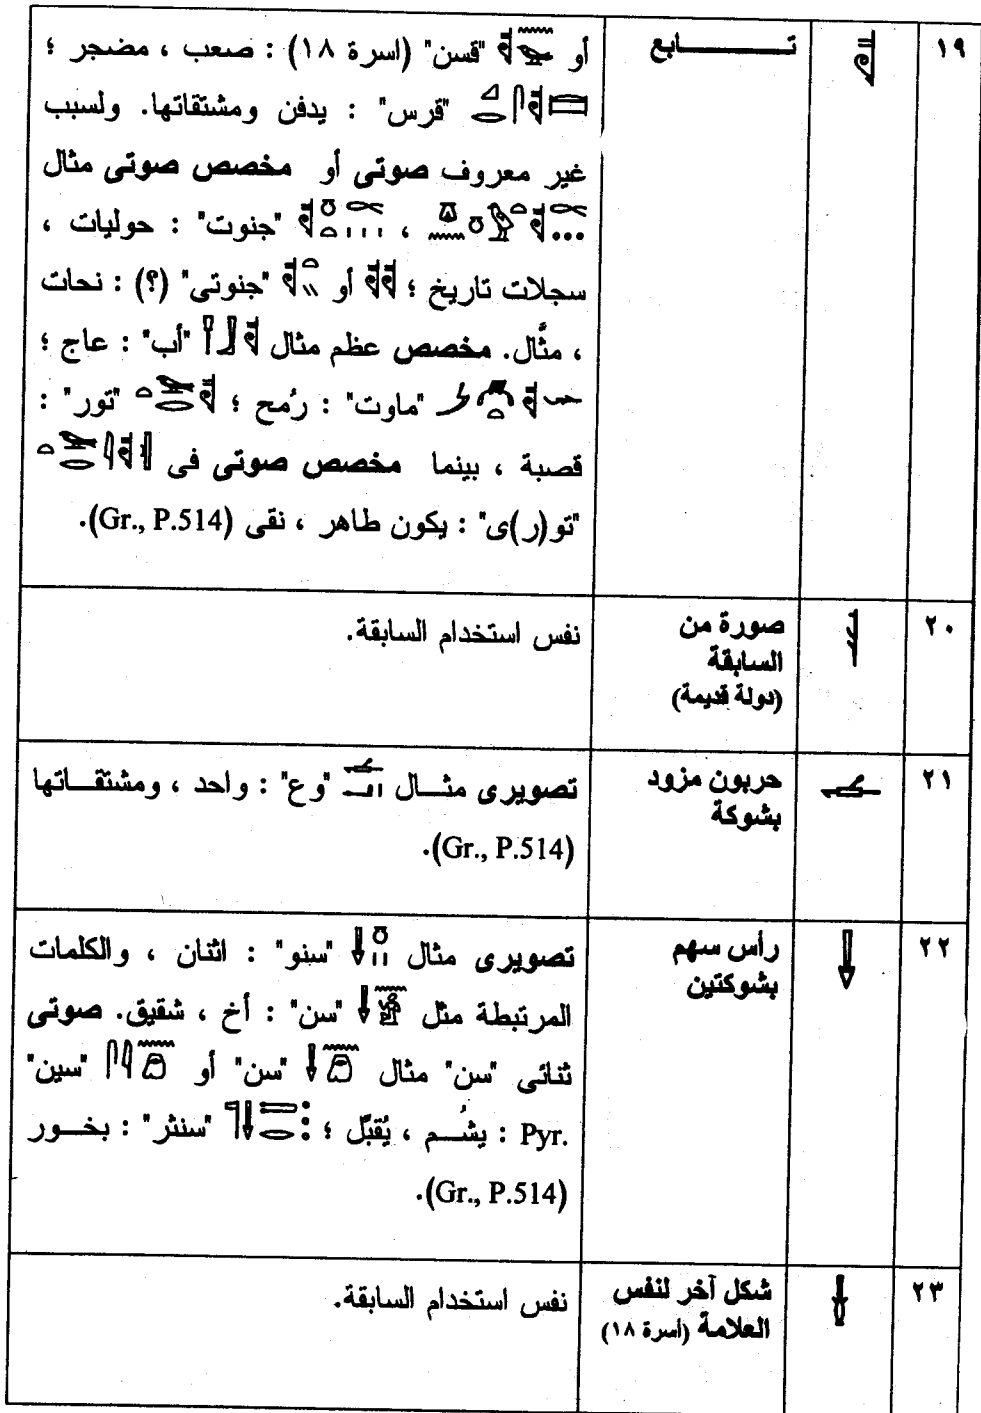 ١٩
تـــــــابع
أو "قسن" (اسرة ١٨) : صعب ، مضجر ؛
"قرس" : يدفن ومشتقاتها. ولسبب
غير معروف صوتى أو مخصص صوتى مثال
، "جنوت" : حوليات ،
سجلات تاريخ ؛ أو "جنوتى" (؟) : نحات
، مثَّال. مخصص عظم مثال "أب" : عاج ؛
"ماوت" : رُمح ؛ "تور" :
قصبة ، بينما مخصص صوتى فى
"تو(ر)ى" : يكون طاهر ، نقى (Gr., P.514).
٢٠
صورة من
السابقة
(دولة قديمة)
نفس استخدام السابقة.
٢١
حربون مزود
بشوكة
تصويرى مثـــال "وع" : واحد ، ومشتقـــاتها
(Gr., P.514).
٢٢
رأس سهم
بشوكتين
تصويرى مثال "سنو" : اثنان ، والكلمات
المرتبطة مثل "سن" : أخ ، شقيق. صوتى
ثنائى "سن" مثال "سن" أو "سين"
Pyr. : يشُـــم ، يُقبَّل ؛ "سنثر" : بخـــور
(Gr., P.514).
٢٣
شكل آخر لنفس
العلامة (أسرة ١٨)
نفس استخدام السابقة.